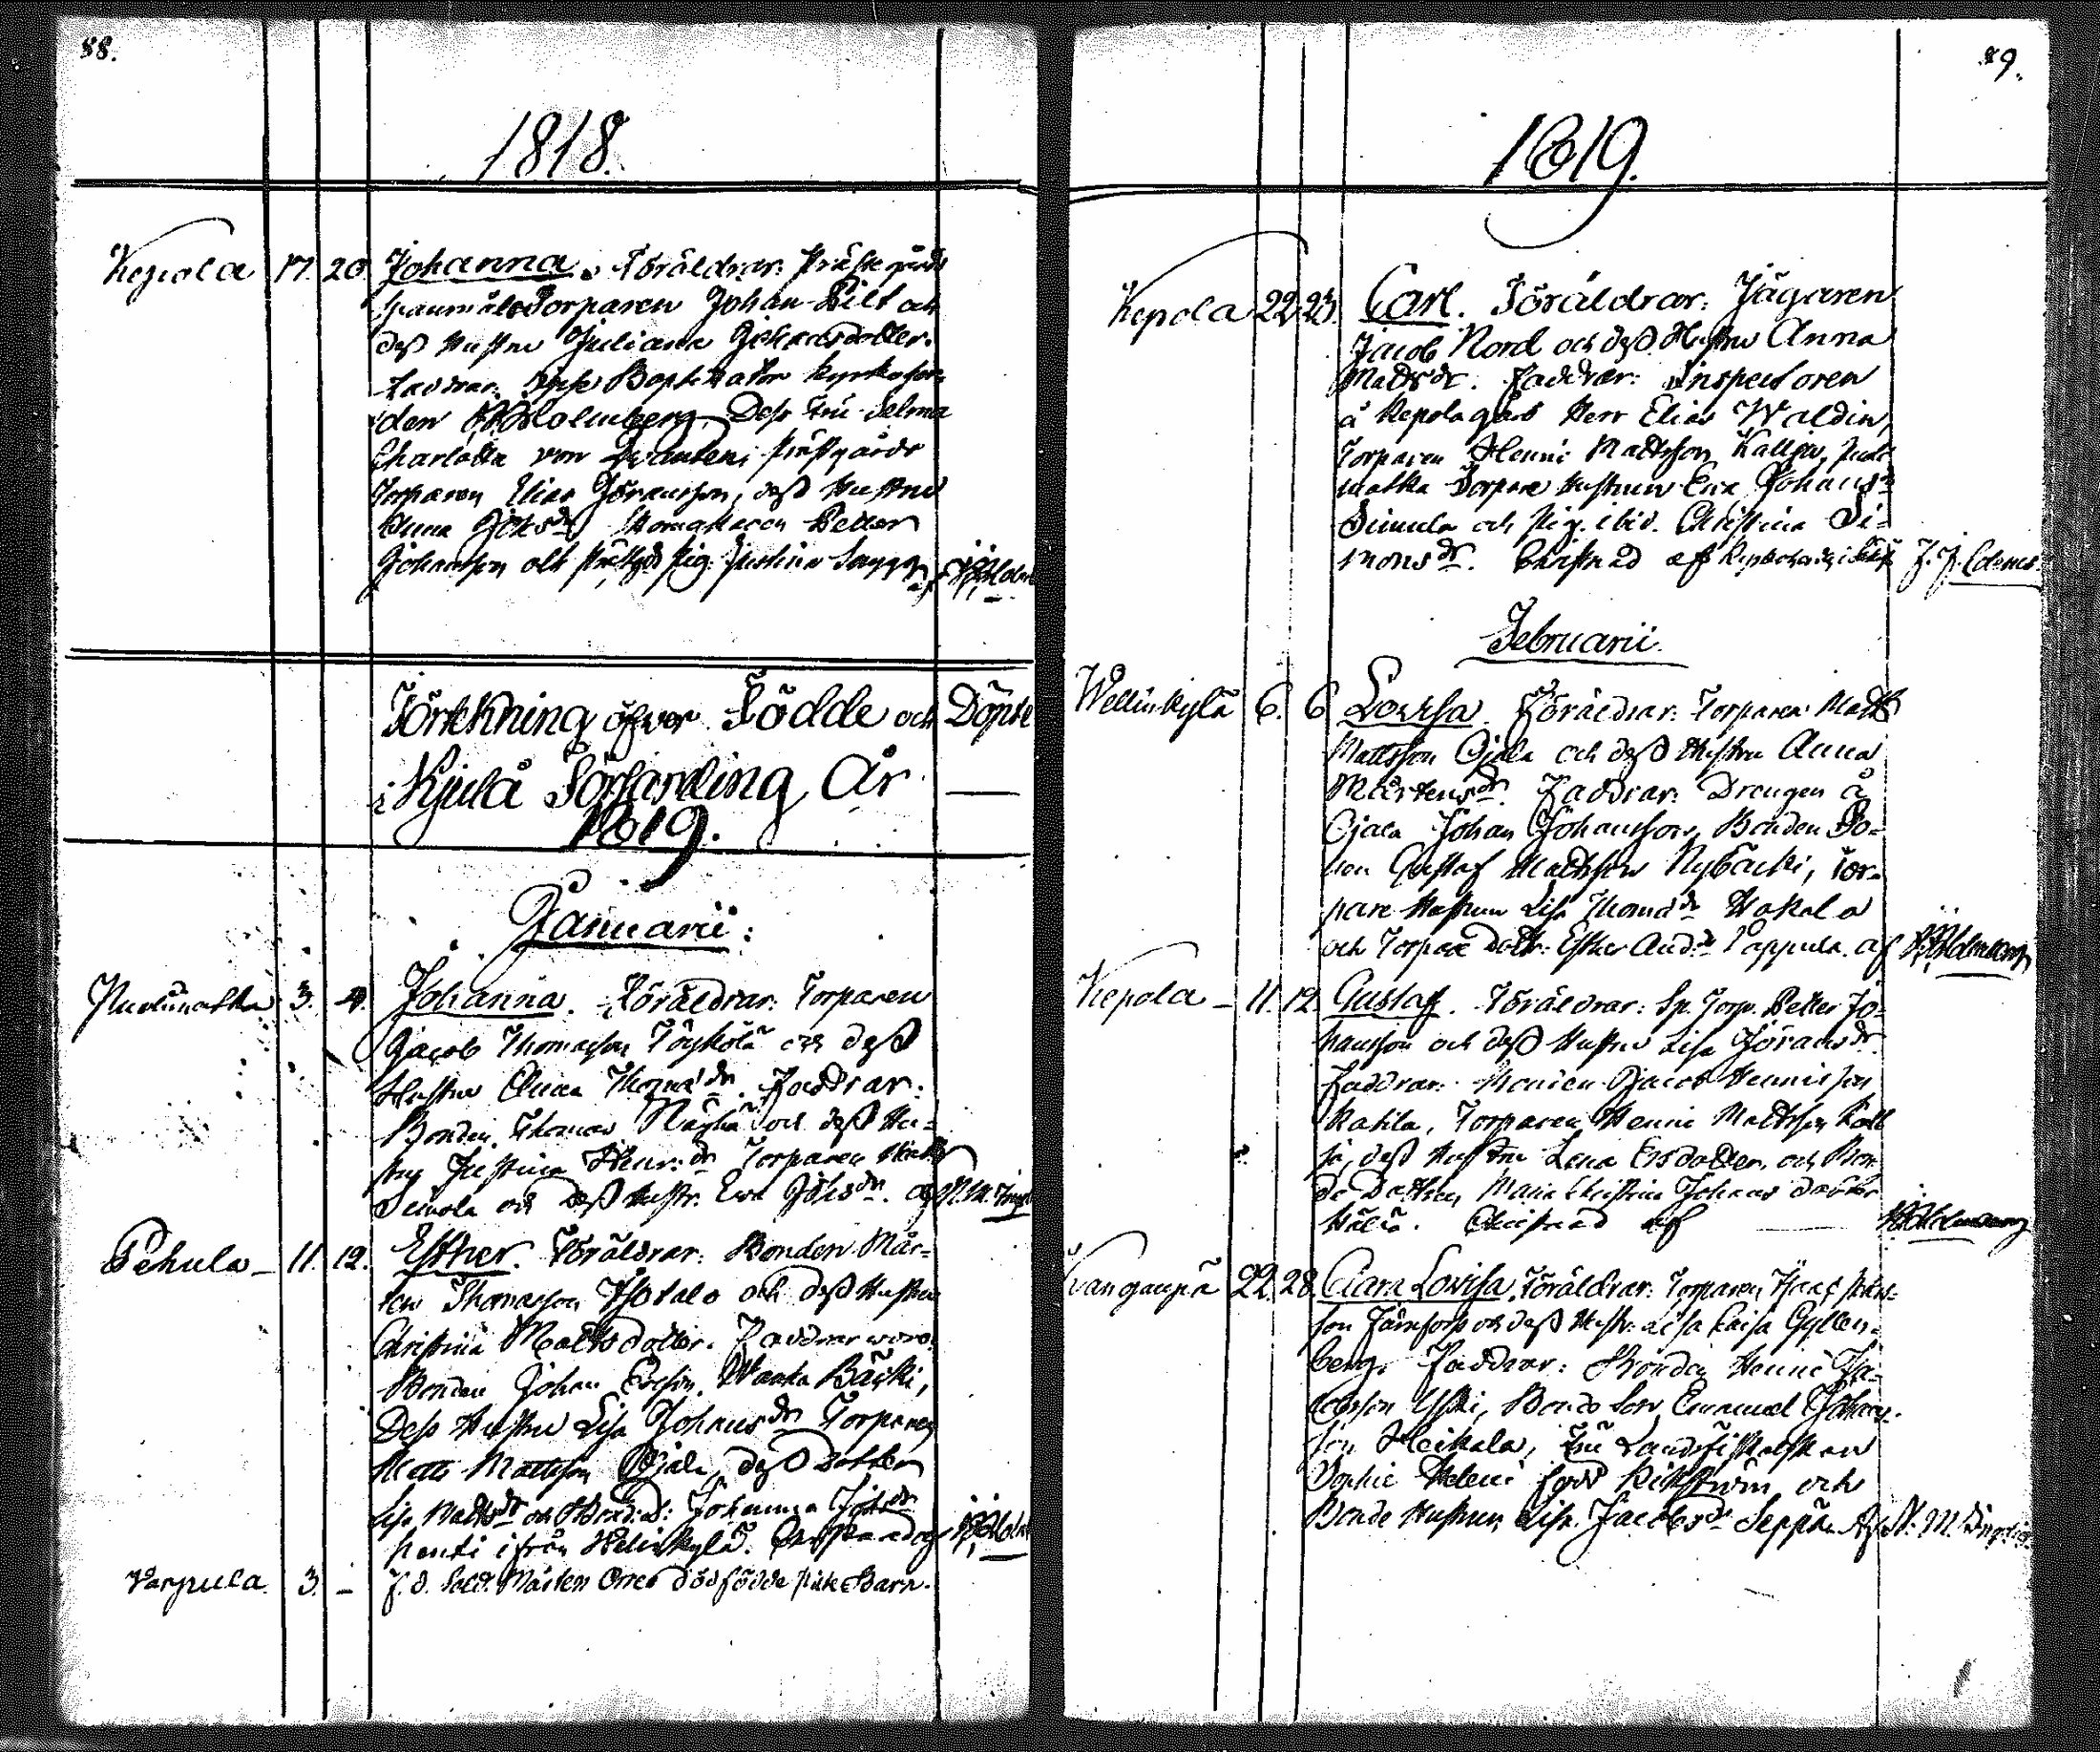 88.
1818.
Kepola 17. 20. Johanna. Föräldrar: Prästgårds
spanmåls Torparen Johan Pilt och
dess Hustru Juliana Johansdotter.
Faddrar: Baptisator Kyrkoher-
den Holmberg, Dess Fru Selma
Charlotta von Qvanten, Prästgårds
Torparen Elias Göransson, dess Hustru
Anna Johsdr Petter
Johansson och Prästgds Pig. Justina
af Holmb
Förtekning öfver Födde och Döpte
i Kjulå Församling År
1819.
Januarii:
3. 4. Johanna. Föräldrar: Torparen
Jacob Thomasson Töyskölä och dess
Hustru Anna Thomædr. Faddrar:
Bonden Thomas och dess Hu-
stru Justina Henr:dr Torparen Matts
Simola och dess Hustr. Eva Johsdr. af N. M.
Pehula – 11. 12. Esther. Föräldrar: Bonden Mår-
ten Thomasson Isotalo och dess Hustru
Christina Mattsdotter. Faddrar voro:
Bonden Johan Ericsson Wanha Bäcki,
Dess Hustru Lisa Johansdr Torparen
Matts Mattsson Ojala, dess Dotter
Lisa Mattsdr och Bond.D: Johanna Johsdr
Penti ifrån Wellinkylä. Christnad af Holmb
Varpula. 3. – f. d. Sold. Mårten Orres dödfödde pike Barn.
89.
1819.
Kepola 22 23. Carl. Föräldrar: Jägaren
Jacob Nord och dess Hustru Anna
Matsdr. Faddrar: Inspectoren
å Kepola gård Herr Elias Waldin,
Torparen Henric Mattsson Kallio,
matka Torpare Hustrun Eva Johansdr
Simula och Pig. ibid. Christina Si-
monsdr. Christnad af J. J.
Februarii.
Wellinkylä 6. 6 Lovisa. Föräldrar: Torparen Matts
Mattsson Ojala och dess Hustru Anna
Mårtensdr. Faddrar: Drengen å
Ojala Johan Johansson, Bonden So-
nen Gustaf Mattsson Nybäcki, Tor-
pare Hustrun Lisa Thomædr Hakala
och Torpare Dottr: Esther And:dr Pappula. af Holmberg
Kepola – 11. 12. Gustaf. Föräldrar: Sp. Torp. Petter Jo-
hansson och dess Hustru Lisa Jöransdr.
Faddrar: Jacob Henricsson
Torparen Henric Mattsson Kall
io, dess Hustru Lena Ersdotter, och Bon-
de Dottren Maria Christina Johans dotter
Christnad af Holmberg
Kangaspä 22. 28. Clara Lovisa. Föräldrar: Torparen Isaac
son Järnfors och dess Hustr: Lisa Caisa Gyllen-
berg. Faddrar: Bonden Henric Ja-
cobsson Uski, Bonde Son Emanuel Johans-
son Heikala, Fru Landsfiskalskan
Sophie Helene född och
Bonde Hustrun Lisa Jacobsdr Seppä. Af N: M.